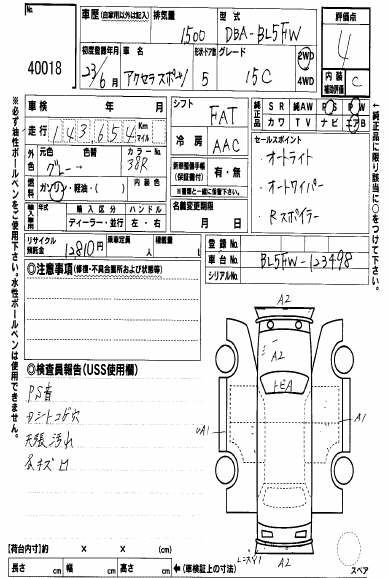 No.
40018
車歴 (自家用以外は記入) 排気量 1500 型式 DBA-BL5FW
評価点 4
初度登録年月 車名 形状・ドア数 グレード
23/6 アクセラスポーツ 5 15C
2WD
4WD
内装 補助評価 C
車検 年 月
シフト FAT
純正品 SR 純AW PS PW
カワ TV ナビ エアB
走行 143654 Km マイル
冷房 AAC
セールスポイント
・オートライト
・オートワイパー
・Rスポイラー
外色 元色 色替 カラーNo.
グレー → 38R
新車整備手帳(保証書付) 有・無
※書類と一緒に保管下さい。
燃料 ガソリン・軽油・( ) 内装色
名義変更期限
月 日
輸入車用 輸入区分 ハンドル
ディーラー・並行 左・右
リサイクル預託金 12810円 乗車定員 人 積載量
登録No.
車台No. BL5FW-123498
シリアルNo.
◎注意事項(修復・不具合箇所および状態等)
◎検査員報告(USS使用欄)
PS音
シートコゲ穴
天張汚れ
A2
A2
トビA
A1
A1
A2
【荷台内寸】約 × × (cm)
長さ cm 幅 cm 高さ cm ←(車検証上の寸法)
スペア
※必ず油性ボールペンをご使用下さい。水性ボールペンは使用できません。
←純正品に限り該当に○をつけて下さい。